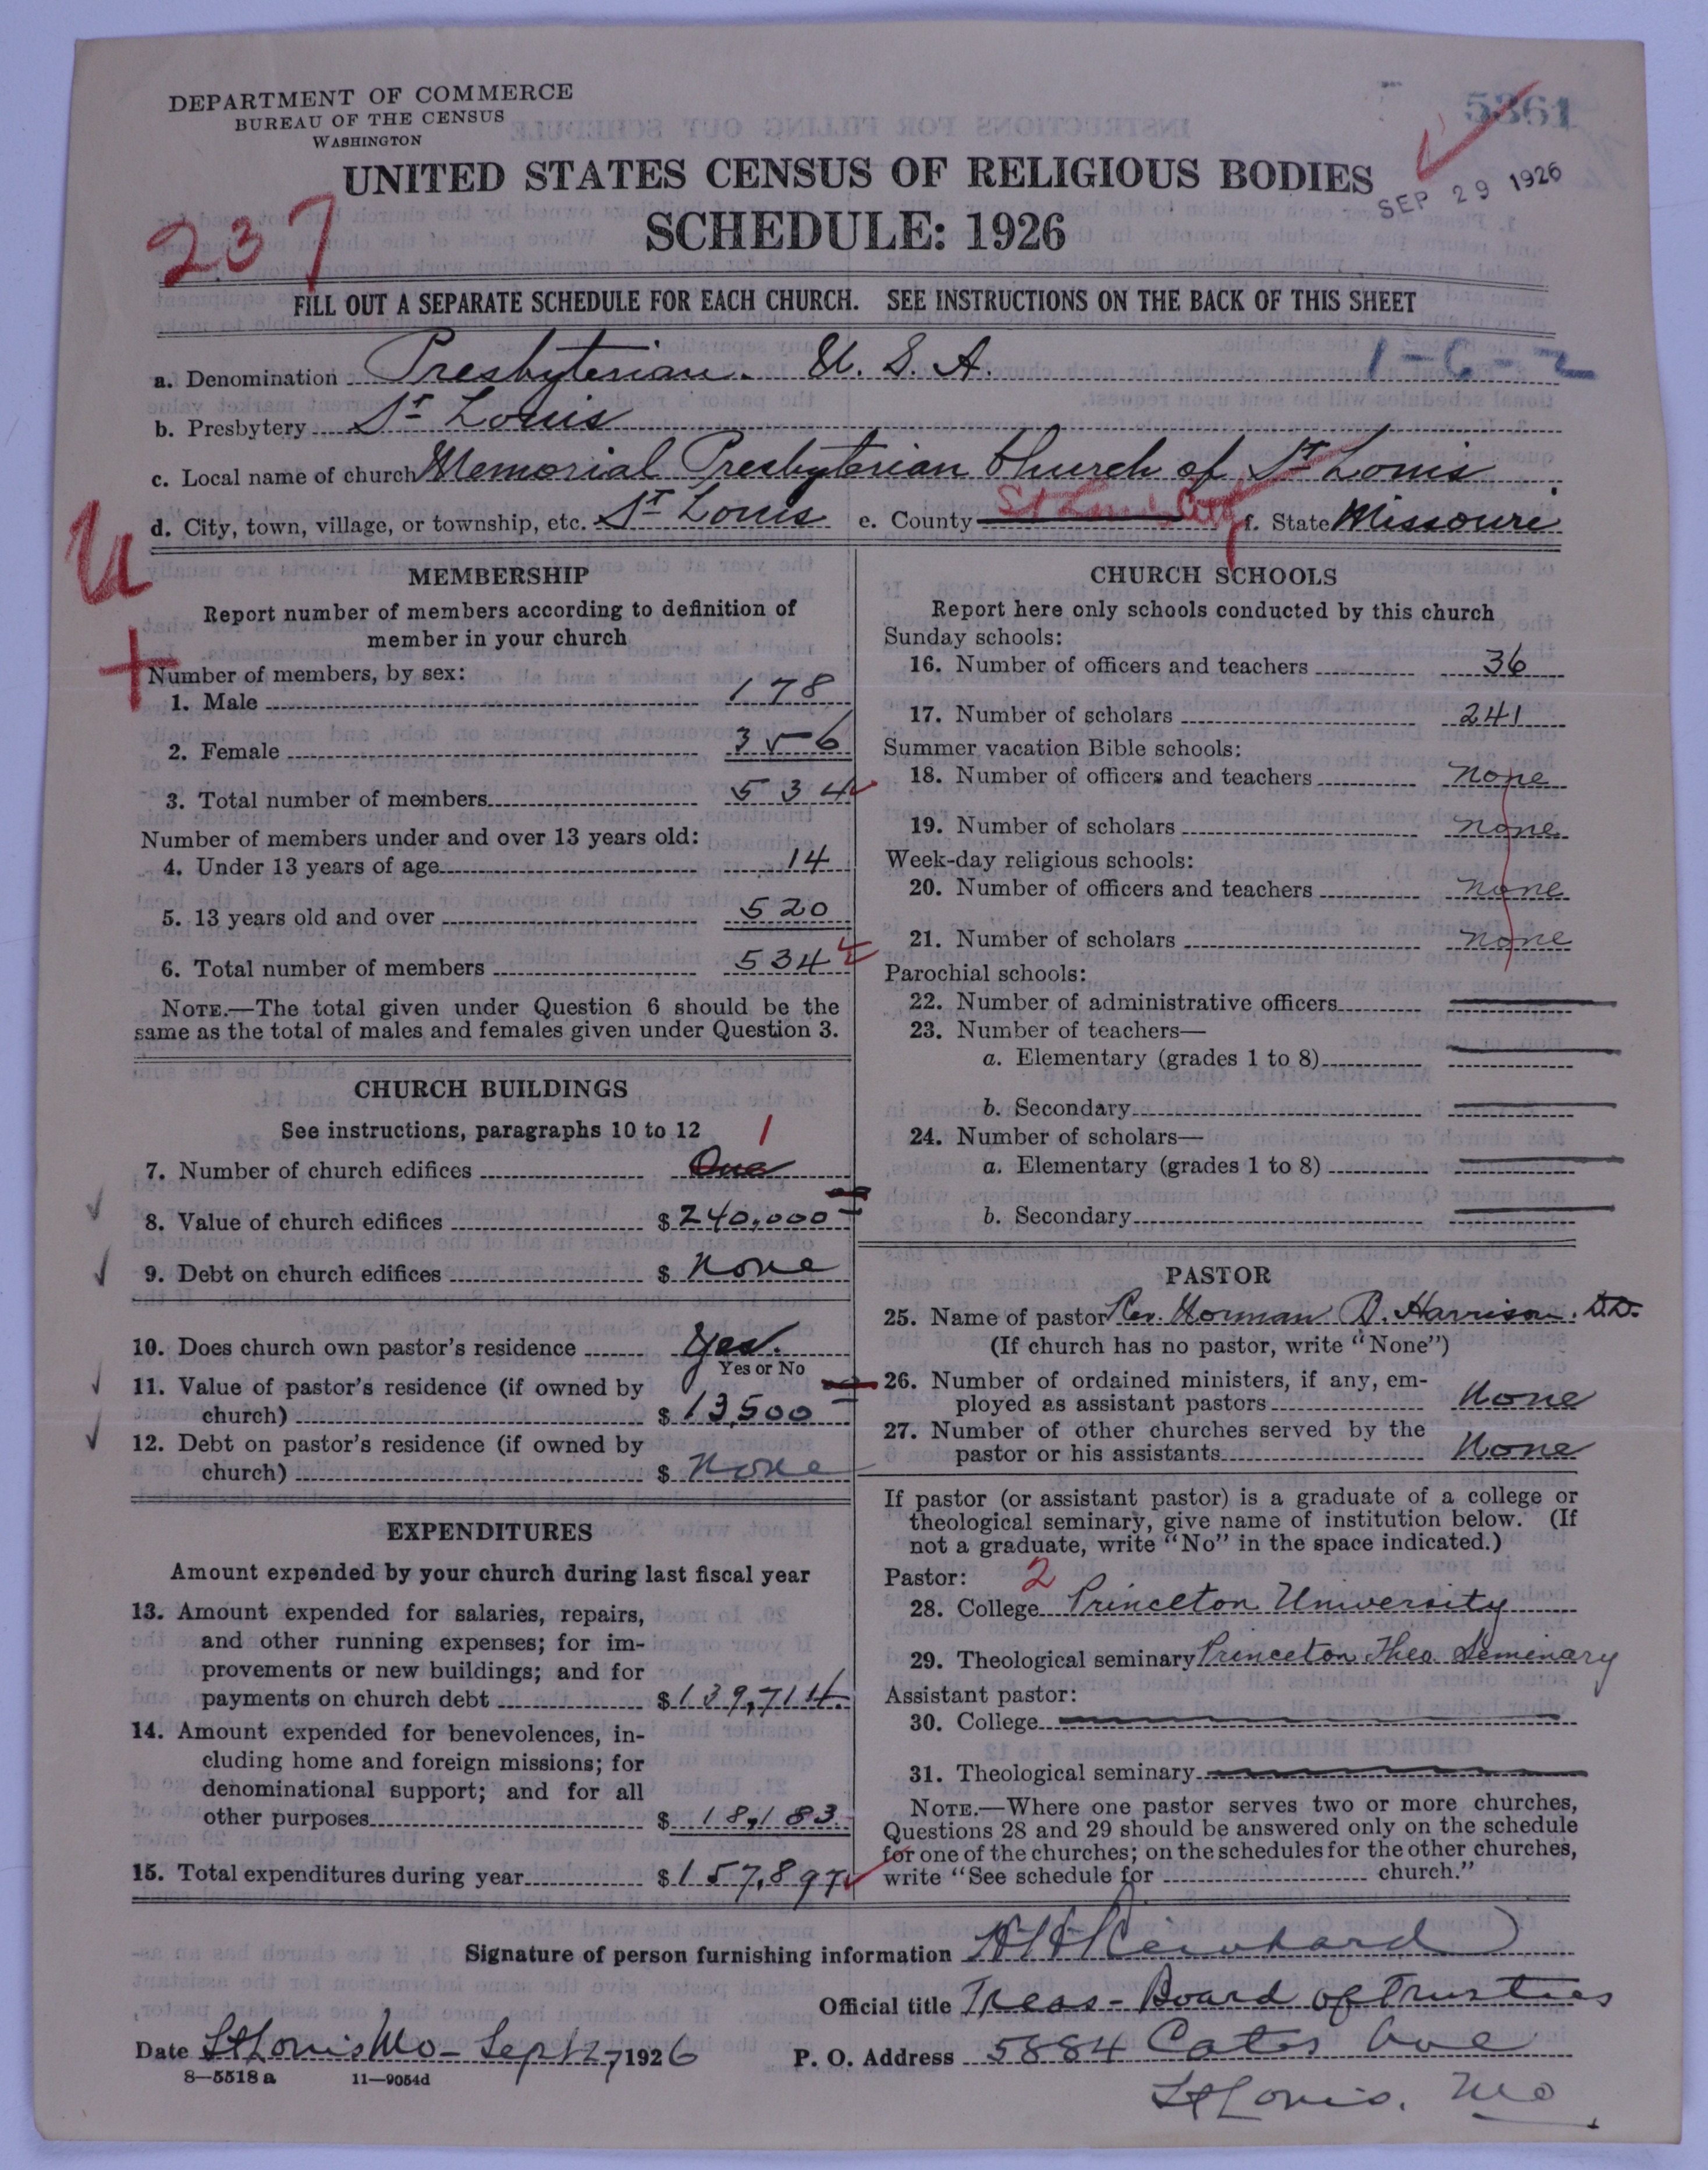 DEPARTMENT OF COMMERCE
BUREAU OF THE CENSUS
WASHINGTON
5361
UNITED STATES CENSUS OF RELIGIOUS BODIES
SEP 29 1926
SCHEDULE: 1926
237
FILL OUT A SEPARATE SCHEDULE FOR EACH CHURCH. SEE INSTRUCTIONS ON THE BACK OF THIS SHEET
1-C-2
a. Denomination Presbyterian. U. S. A.
b. Presbytery St Louis
c. Local name of church Memorial Presbyterian Church of St Louis
d. City, town, village, or township, etc. St Louis e. County St Louis City f. State Missouri
U
+
MEMBERSHIP
Report number of members according to definition of
member in your church
Number of members, by sex:
1. Male 178
2. Female 356
3. Total number of members 534
Number of members under and over 13 years old:
4. Under 13 years of age 14
5. 13 years old and over 520
6. Total number of members 534
NOTE.—The total given under Question 6 should be the
same as the total of males and females given under Question 3.
CHURCH BUILDINGS
See instructions, paragraphs 10 to 12
1
7. Number of church edifices One
8. Value of church edifices $240,000
9. Debt on church edifices $ None
10. Does church own pastor's residence Yes.
Yes or No
11. Value of pastor's residence (if owned by
church) $13,500
12. Debt on pastor's residence (if owned by
church) $ None
EXPENDITURES
Amount expended by your church during last fiscal year
13. Amount expended for salaries, repairs,
and other running expenses; for im-
provements or new buildings; and for
payments on church debt $139,714.
14. Amount expended for benevolences, in-
cluding home and foreign missions; for
denominational support; and for all
other purposes $ 18,183.
15. Total expenditures during year $157,897
CHURCH SCHOOLS
Report here only schools conducted by this church
Sunday schools:
16. Number of officers and teachers 36
17. Number of scholars 241
Summer vacation Bible schools:
18. Number of officers and teachers none
19. Number of scholars none
Week-day religious schools:
20. Number of officers and teachers none
21. Number of scholars none
Parochial schools:
22. Number of administrative officers
23. Number of teachers—
a. Elementary (grades 1 to 8)
b. Secondary
24. Number of scholars—
a. Elementary (grades 1 to 8)
b. Secondary
PASTOR
25. Name of pastor Rev. Norman B. Harrison. D.D.
(If church has no pastor, write "None")
26. Number of ordained ministers, if any, em-
ployed as assistant pastors None
27. Number of other churches served by the
pastor or his assistants None
If pastor (or assistant pastor) is a graduate of a college or
theological seminary, give name of institution below. (If
not a graduate, write "No" in the space indicated.)
Pastor: 2
28. College Princeton University
29. Theological seminary Princeton Theo Seminary
Assistant pastor:
30. College
31. Theological seminary
NOTE.—Where one pastor serves two or more churches,
Questions 28 and 29 should be answered only on the schedule
for one of the churches; on the schedules for the other churches,
write "See schedule for church."
Signature of person furnishing information
Official title Treas - Board of Trustees
Date St Louis Mo - Sept 27, 1926 P. O. Address 5884 Cates Ave
8—5518a 11—9054d
St Louis. Mo.